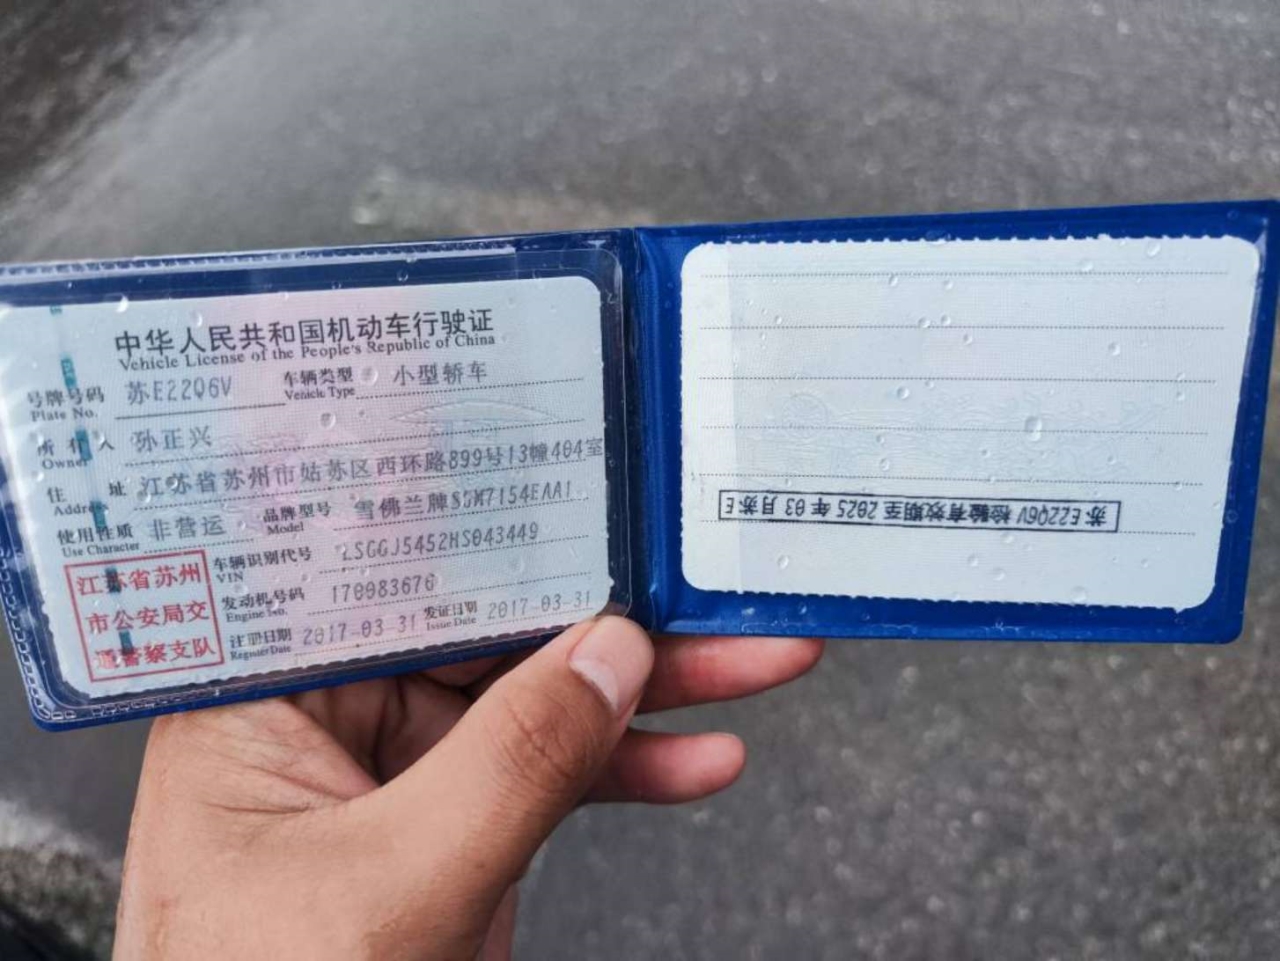 中华人民共和国机动车行驶证
Vehicle License of the People's Republic of China
号牌号码 苏E22Q6V 车辆类型 小型轿车
Plate No. Vehicle Type
所有人 孙正兴
Owner
住址 江苏省苏州市姑苏区西环路899号13幢404室
Address
使用性质 非营运 品牌型号 雪佛兰牌SGM7154EAA1
Use Character Model
车辆识别代号 LSGGJ5452HS043449
VIN
发动机号码 170083676
Engine No.
注册日期 2017-03-31 发证日期 2017-03-31
Register Date Issue Date
江苏省苏州
市公安局交
通警察支队
苏E22Q6V 检验有效期至 2025 年 03 月苏E